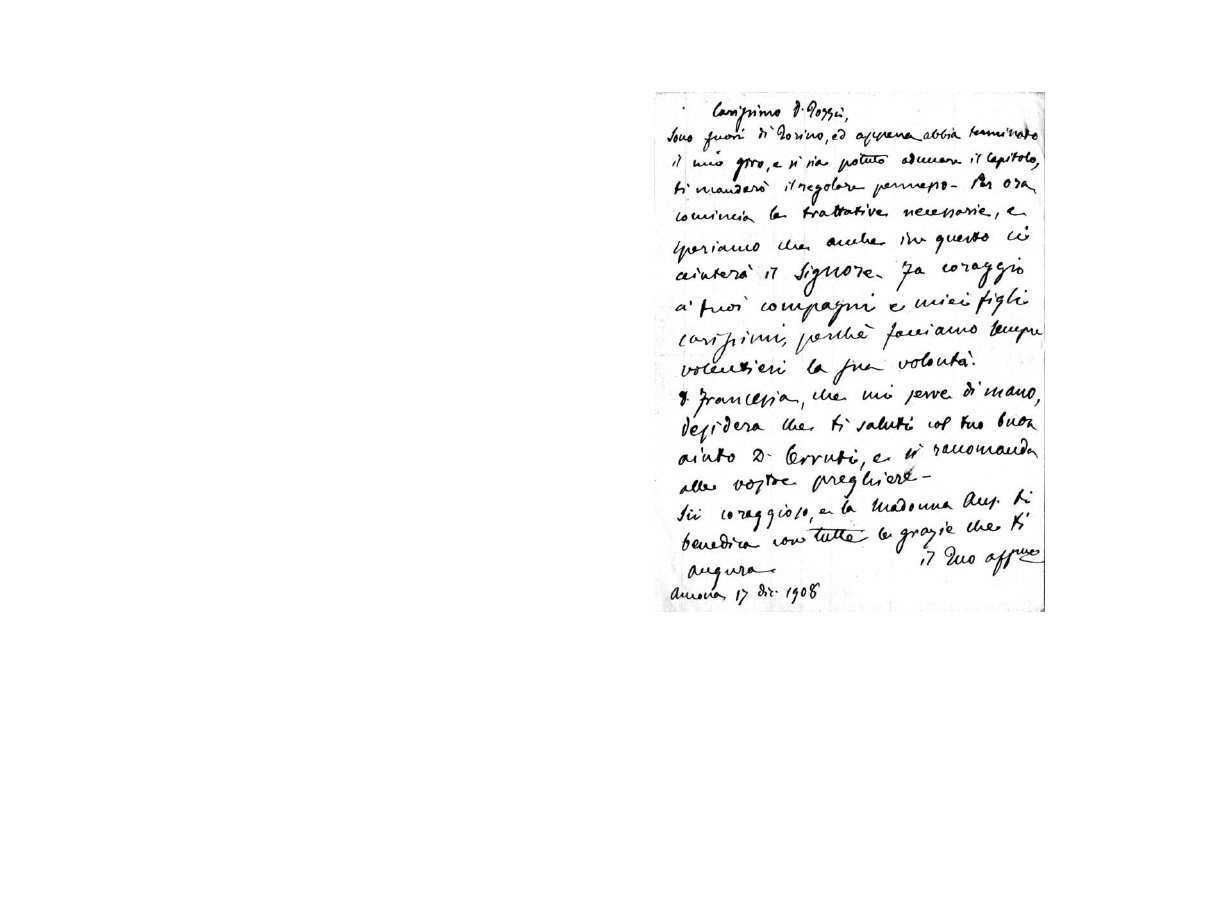 Carissimo D. Poggi,
Sono fuori di Torino, ed appena abbia terminato
il mio giro, e si sia potuto adunare il Capitolo,
ti manderò il regolare permesso - Per ora
comincia le trattative necessarie, e
speriamo che anche in questo ci
aiuterà il Signore. Fa coraggio
a' tuoi compagni e miei figli
carissimi, perchè facciamo sempre
volentieri la sua volontà.
D. Francesia, che mi serve di mano,
desidera che ti saluti col tuo buon
aiuto D. Cerruti, e si racomanda
alle vostre preghiere -
Sii coraggioso, e la Madonna Aus. ti
benedica con tutte le grazie che ti
augura
il Tuo aff.mo
Ancona, 17 dic. 1908